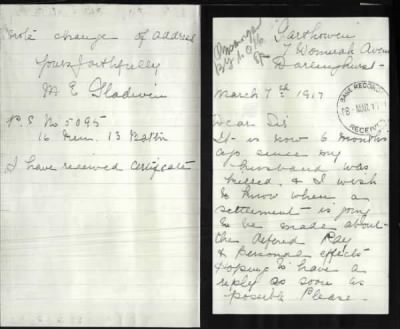 Garthowin
7 Womerah Aven
Darlinghurst -
March 7th 1917
BASE RECORDS
RECEIVED
Dear Sir
It is now 6 months
ago since my
husband was
killed, & I wish
to know when a
settlement is going
to be made about
the Defered Pay
& personal effects
Hoping to have a
reply as soon as
possible Please.
note change of address
Yours faithfully
M E Gladwin
P.S No 5095
16 Rein. 13 Battn
I have received certificate